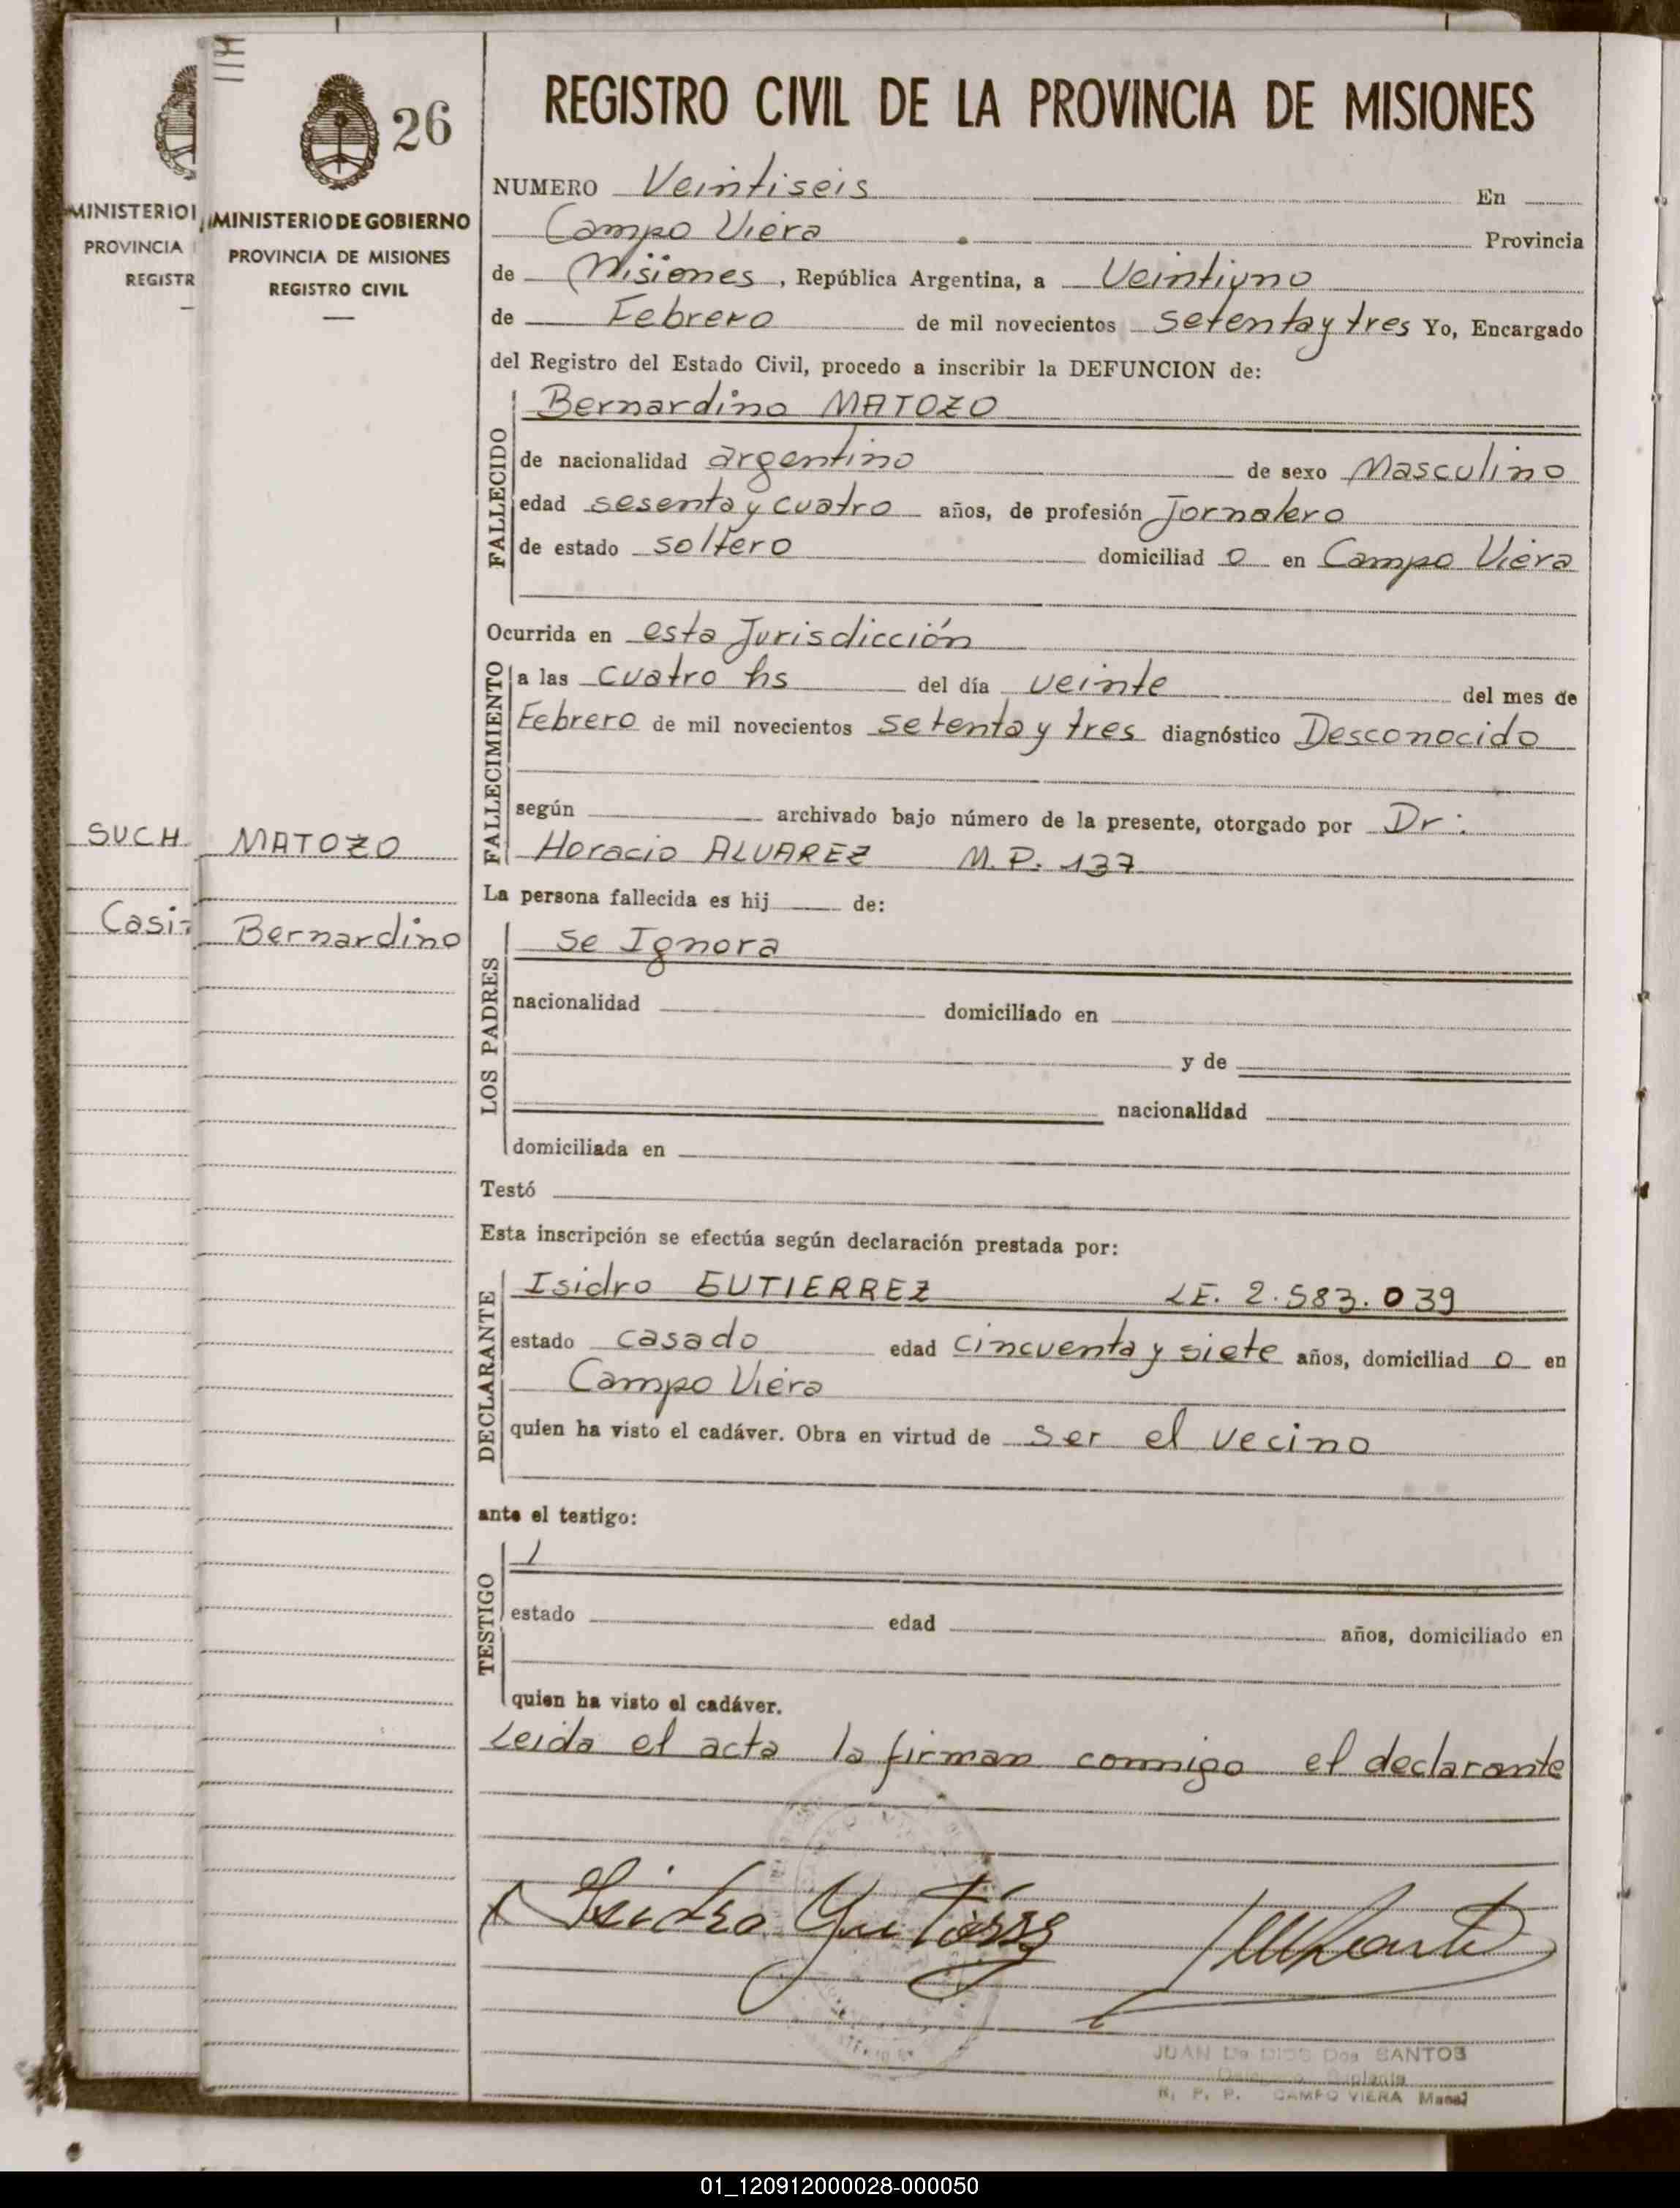 26
MINISTERIO
PROVINCIA
REGISTR
SUCH
Casi
MINISTERIO DE GOBIERNO
PROVINCIA DE MISIONES
REGISTRO CIVIL
MATOZO
Bernardino
REGISTRO CIVIL DE LA PROVINCIA DE MISIONES
NUMERO Veintiseis En
Campo Viera Provincia
de Misiones, República Argentina, a Veintiuno
de Febrero de mil novecientos setenta y tres Yo, Encargado
del Registro del Estado Civil, procedo a inscribir la DEFUNCION de:
FALLECIDO
Bernardino MATOZO
de nacionalidad argentino de sexo Masculino
edad sesenta y cuatro años, de profesión Jornalero
de estado soltero domiciliad o en Campo Viera
Ocurrida en esta Jurisdicción
FALLECIMIENTO
a las cuatro hs del día veinte del mes de
Febrero de mil novecientos setenta y tres diagnóstico Desconocido
según archivado bajo número de la presente, otorgado por Dr:
Horacio ALVAREZ M.P. 137
La persona fallecida es hij de:
LOS PADRES
Se Ignora
nacionalidad domiciliado en
y de
nacionalidad
domiciliada en
Testó
Esta inscripción se efectúa según declaración prestada por:
DECLARANTE
Isidro GUTIERREZ LE. 2.583.039
estado casado edad cincuenta y siete años, domiciliad o en
Campo Viera
quien ha visto el cadáver. Obra en virtud de ser el vecino
ante el testigo:
TESTIGO
estado edad años, domiciliado en
quien ha visto el cadáver.
Leida el acta la firman conmigo el declarante
Isidro Gutierrez
JUAN De DIOS Dos SANTOS
R. P. P. CAMPO VIERA
01_120912000028-000050